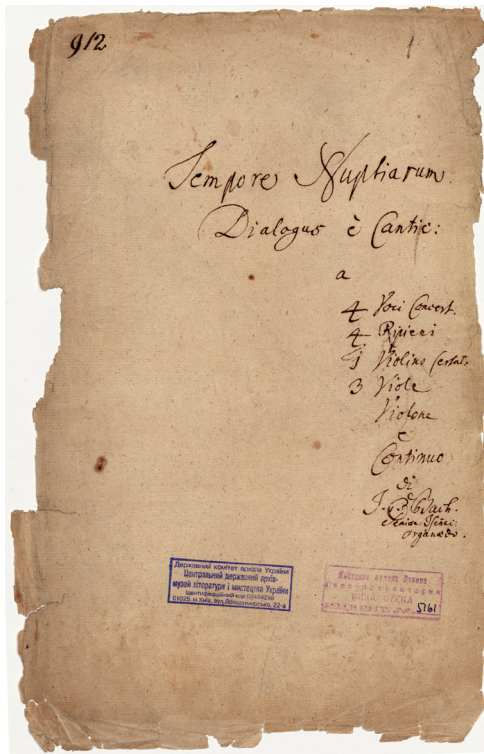 912
1
Tempore Nuptiarum.
Dialogus è Cantic:
a
4 Voci Concert.
4 Ripieni
1 Violino Certato
3 Viole
Violone
è
Continuo
di
J. Bach.
organædo.
Державний комітет архівів України
Центральний державний архів-
музей літератури і мистецтва України
Ідентифікаційний код
01025, м. Київ, вул. Володимирська, 22-а
БИБЛИОТЕКА
5161